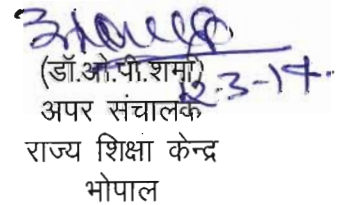 (डॉ.ओ.पी.शर्मा)
12-3-14
अपर संचालक
राज्य शिक्षा केन्द्र
भोपाल